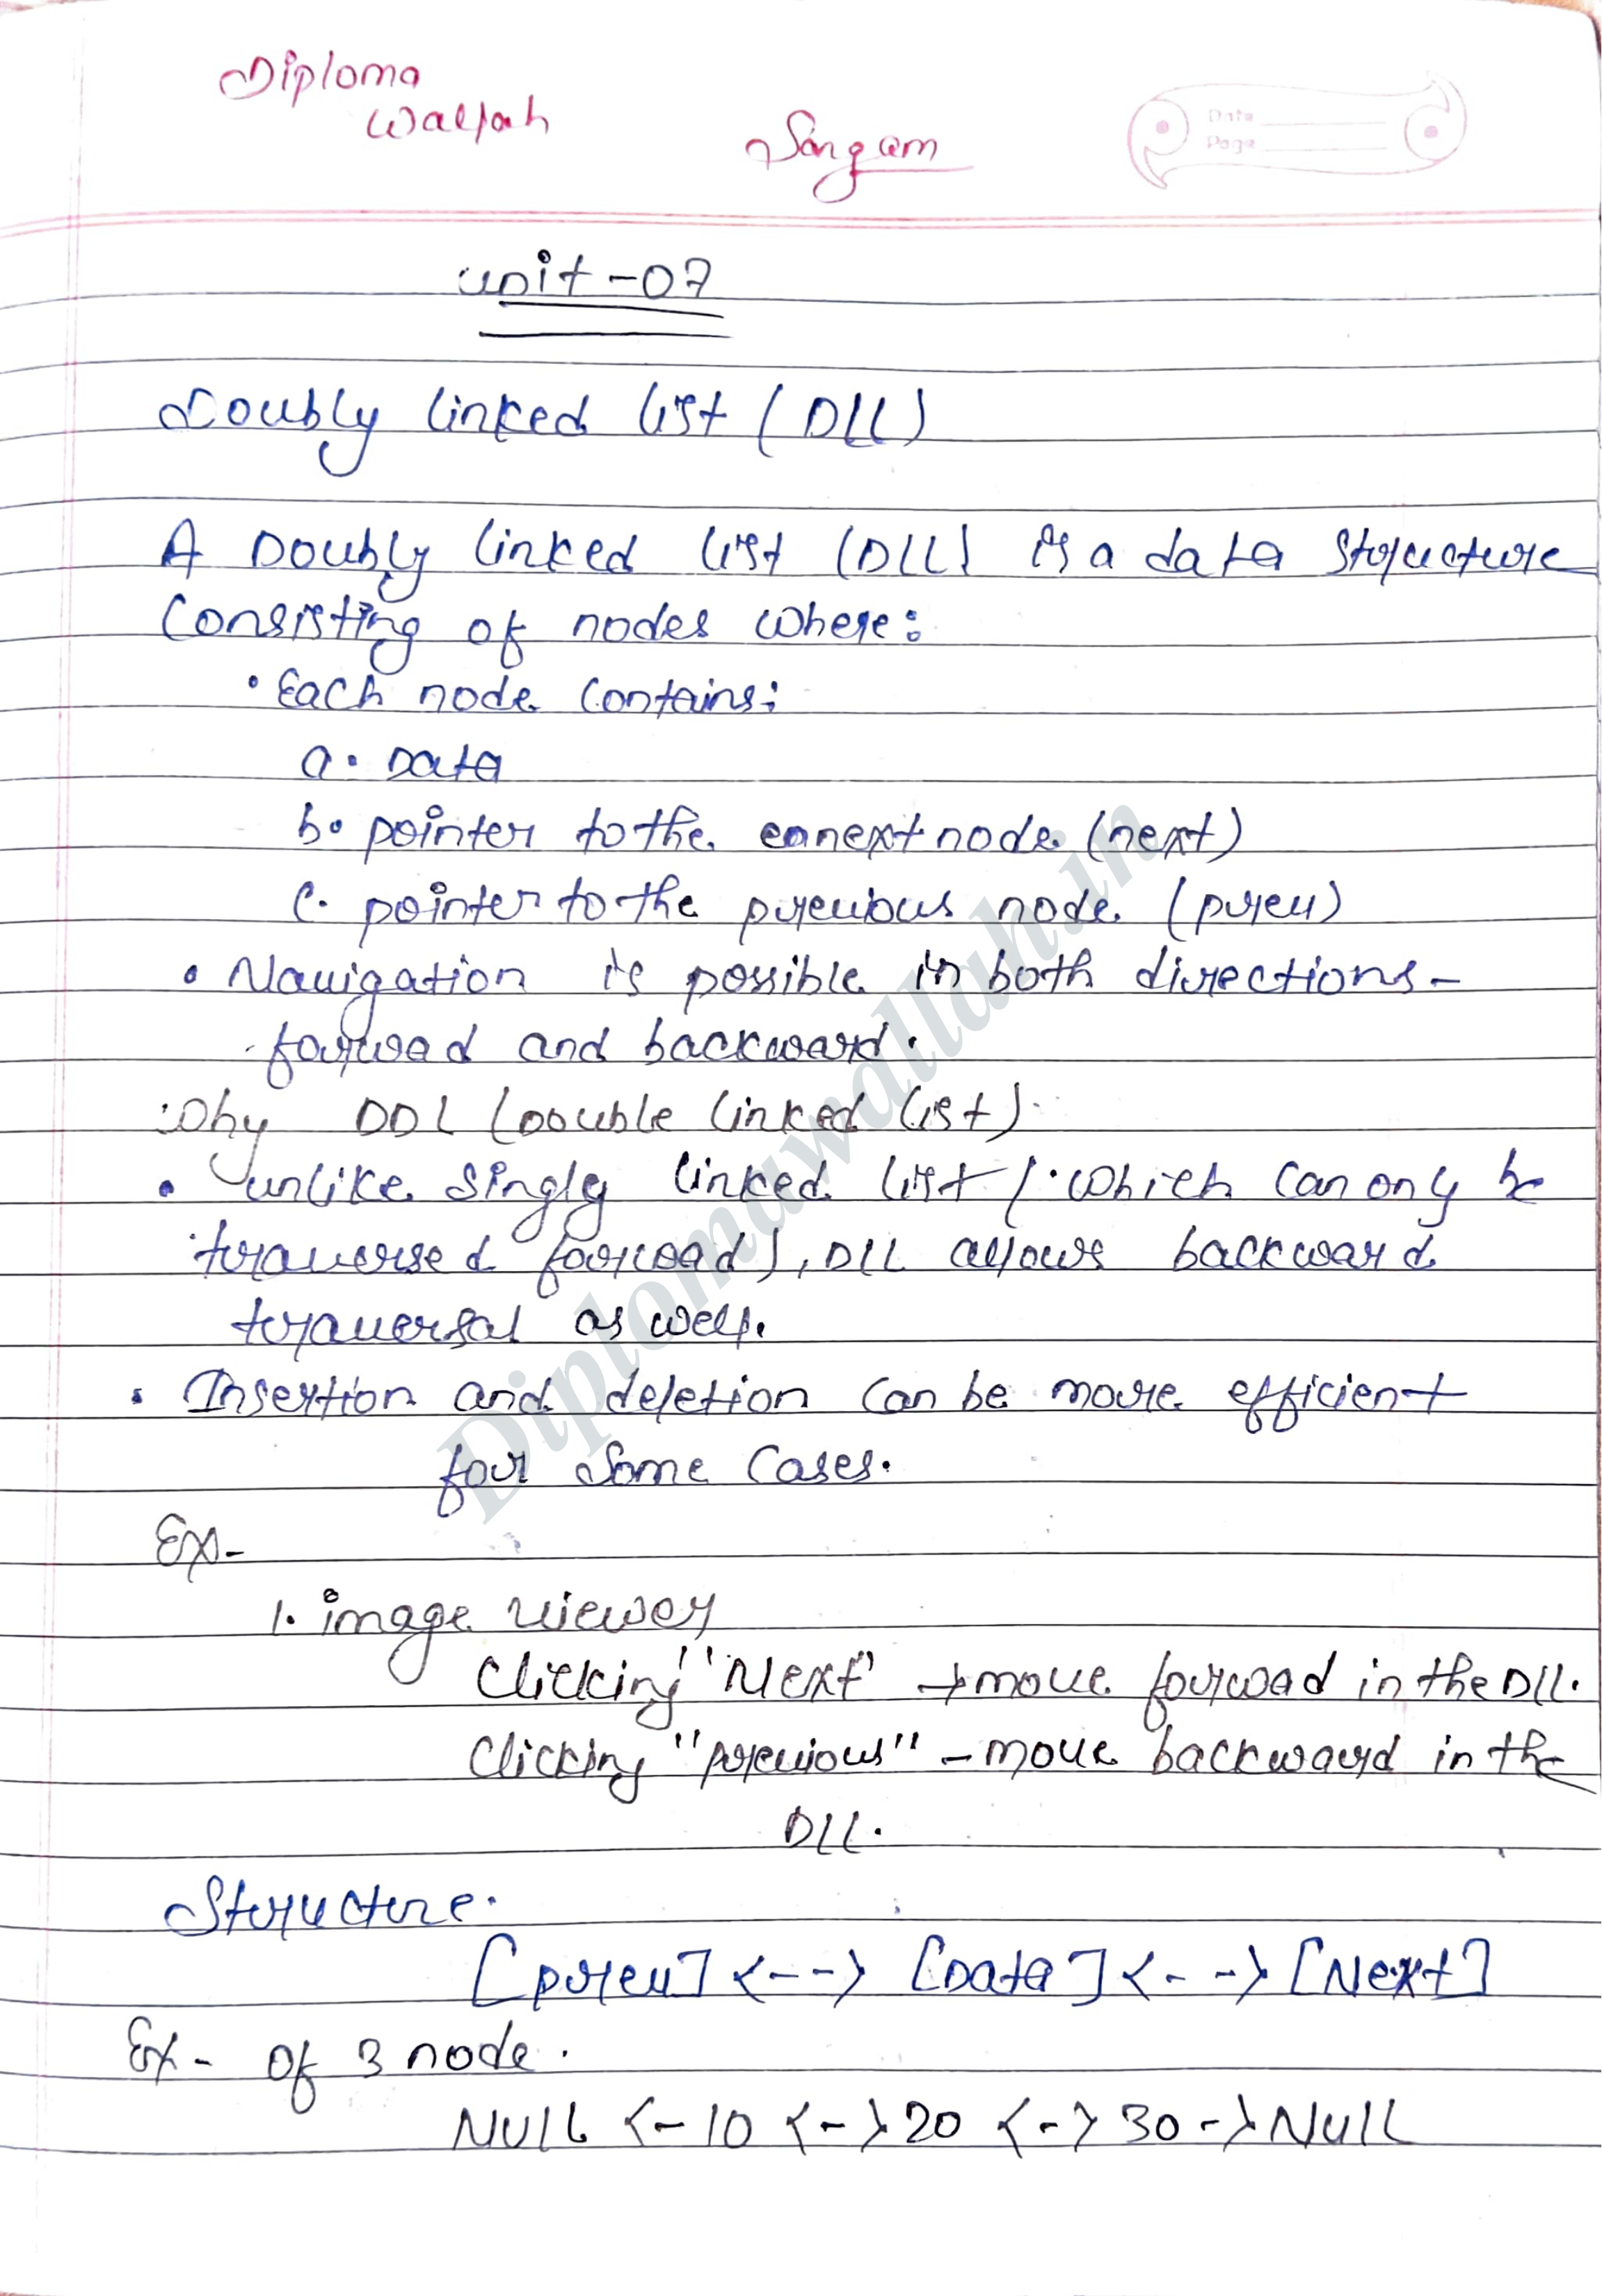 Diploma
Wallah
Sangam
Date
Page
unit-07
Doubly linked list (DLL)
A Doubly linked list (DLL) is a data structure
Consisting of nodes where:
• Each node contains:
a. Data
b. pointer to the next node (next)
c. pointer to the previous node (prev)
• Navigation is possible in both directions-
forwad and backward.
Why DDL (Double linked list)
• unlike singly linked list (which can ony be
traversed forwad), DLL allows backward
traversal as well.
• Insertion and deletion can be more efficient
for some cases.
Ex-
1. image viewer
Clicking "Next" → move forwad in the DLL.
Clicking "previous" - move backward in the
DLL.
Structure.
[prev] <--> [Data] <--> [Next]
Ex- of 3 node.
NULL <- 10 <-> 20 <-> 30 -> NULL
Diplomawallah.in